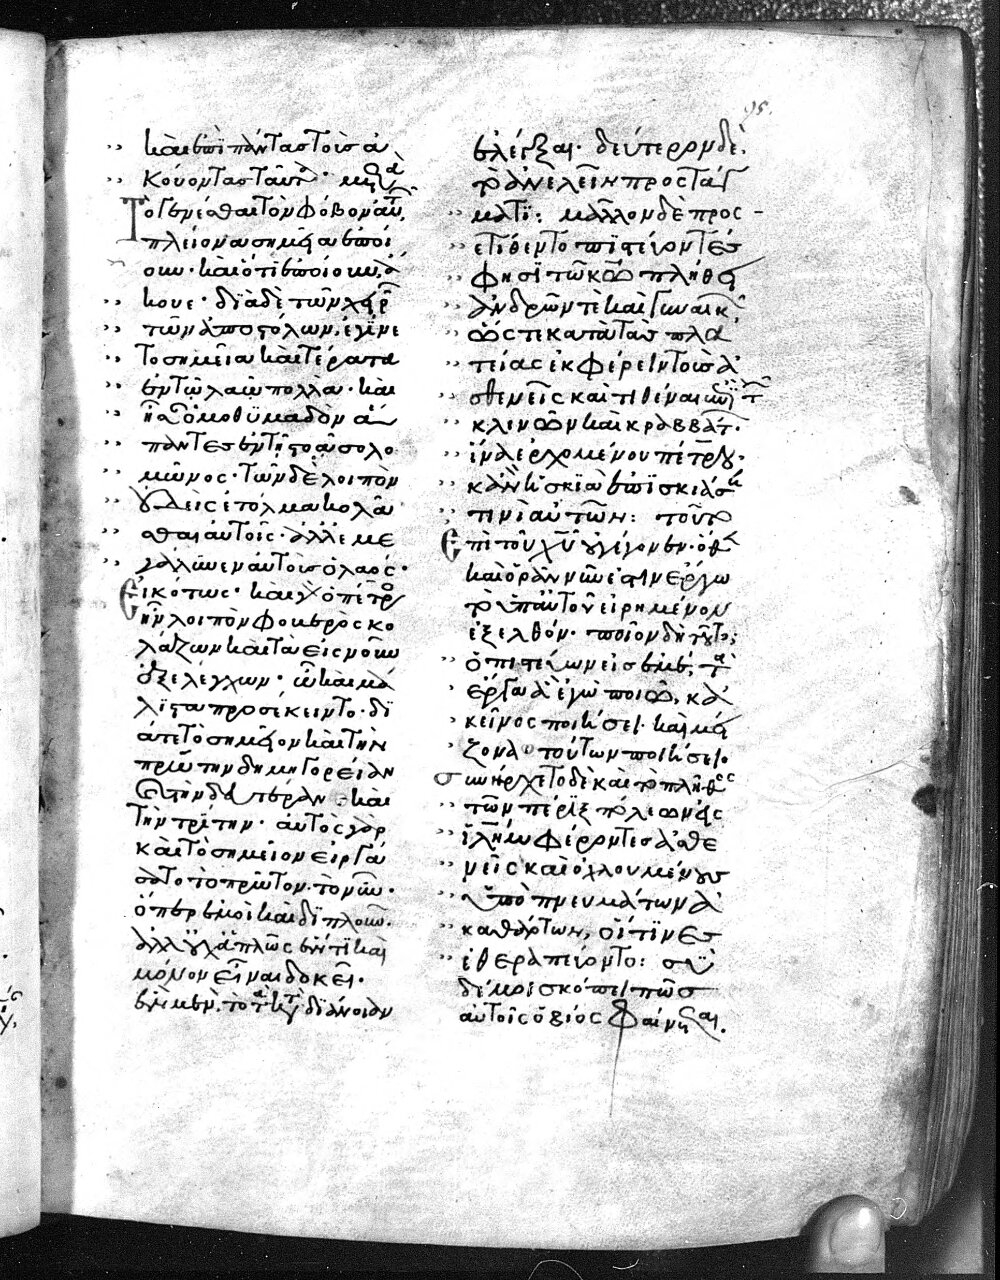 καὶ ἐπὶ πάντας τοὺς ἀ
κούοντας ταῦτα· μετὰ
Το γενέσθαι τὸν φόβον αὐτ
πλείονα σημεῖα ἐποί
ουν· καὶ ὅτι ἐποίουν, ἄ
κουε· διὰ δὲ τῶν χειρ
τῶν ἀποστόλων, ἐγίνε
το σημεῖα καὶ τέρατα
ἐν τῷ λαῷ πολλὰ· καὶ
ἦσαν ὁμοθυμαδὸν ἅ
παντες ἐν τῇ στοᾷ σολο
μῶνος· τῶν δὲ λοιπῶν
οὐδεὶς ἐτόλμα κολλᾶ
σθαι αὐτοῖς· ἀλλ' ἐμε
γάλυνεν αὐτοὺς ὁ λαός·
Εἰκότως· καὶ γὰρ ὁ πέτρο
ἦν λοιπὸν φοβερὸς κο
λάζων καὶ τὰ εἰς νοῦν
ἐξελέγχων· ᾧ καὶ μά
λιστα προσέκειντο· δι
ά τε τὸ σημεῖον καὶ τὴν
πρώτην δημηγορείαν
καὶ τὴν δευτέραν καὶ
τὴν τρίτην· αὐτὸς γὰρ
καὶ τὸ σημεῖον εἰργά
σατο τὸ πρῶτον· τὸ νῦν·
ὅπερ ἐμοὶ καὶ διπλοῦν·
ἀλλ' οὐχ ἁπλῶς ἕν τι καὶ
μόνον εἶναι δοκεῖ·
ἓν μὲν, τὸ τὰ κατὰ διάνοιαν
ἐλέγξαι· δεύτερον δὲ,
τὸ ἀνελεῖν προστάγ
ματι: μᾶλλον δὲ προς -
ετίθεντο πιστεύοντες
φησὶ τῶ κῶ πλήθη
ἀνδρῶν τὲ καὶ γυναικ,
ὥστε κατὰ τὰς πλα
τείας ἐκφέρειν τοὺς ἀ
σθενεῖς καὶ τιθέναι ἐπὶ τ
κλινῶν καὶ κραββάτ·
ἵνα ἐρχομένου πέτρου·
κἂν ἡ σκιὰ ἐπισκιάση
τινὶ αὐτῶν: τοῦτο
Επὶ τοῦ χῦ οὐ γέγονεν· ὅθ
καὶ ὁρᾶν νῦν ἐστιν ἔργω
τὸ ὑπ' αὐτοῦ εἰρημένον
ἐξελθόν· ποῖον δὴ τοῦτο;
ὁ πιστεύων εἰς ἐμὲ, τὰ
ἔργα ἃ ἐγὼ ποιῶ, κἀ
κεῖνος ποιήσει· καὶ μεί
ζονα τούτων ποιήσει·
συνήρχετο δὲ καὶ τὸ πλῆθος
τῶν πέριξ πόλεων εἰς
ἱλῆμ φέροντες ἀσθε
νεῖς καὶ ὀχλουμένους
ὑπὸ πνευμάτων ἀ
καθάρτων, οἵτινες
ἐθεραπεύοντο: σὺ
δέ μοι σκόπει πῶς
αὐτοῖς ὁ βίος φαίνεται.